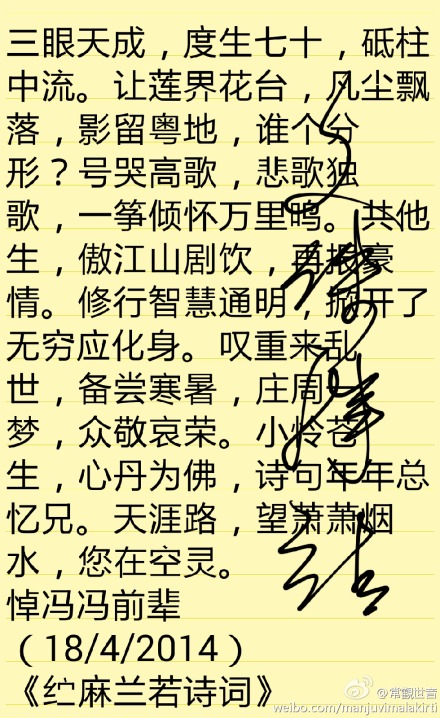 三眼天成，度生七十，砥柱
中流。让莲界花台，凡尘飘
落，影留粤地，谁个分
形？号哭高歌，悲歌独
歌，一筝倾怀万里鸣。共他
生，傲江山剧饮，再报豪
情。修行智慧通明，掀开了
无穷应化身。叹重来乱
世，备尝寒暑，庄周一
梦，众敬哀荣。小怜苍
生，心丹为佛，诗句年年总
忆兄。天涯路，望萧萧烟
水，您在空灵。
悼冯冯前辈
（18/4/2014）
《纻麻兰若诗词》
常觀世音
weibo.com/manjuvimalakirti